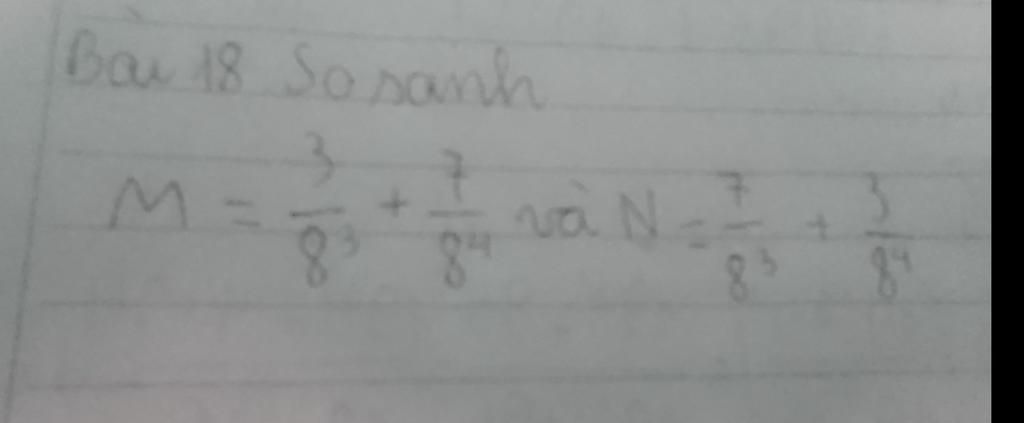 Bài 18 So sanh
M = 3/8³ + 7/8⁴ và N = 7/8³ + 3/8⁴